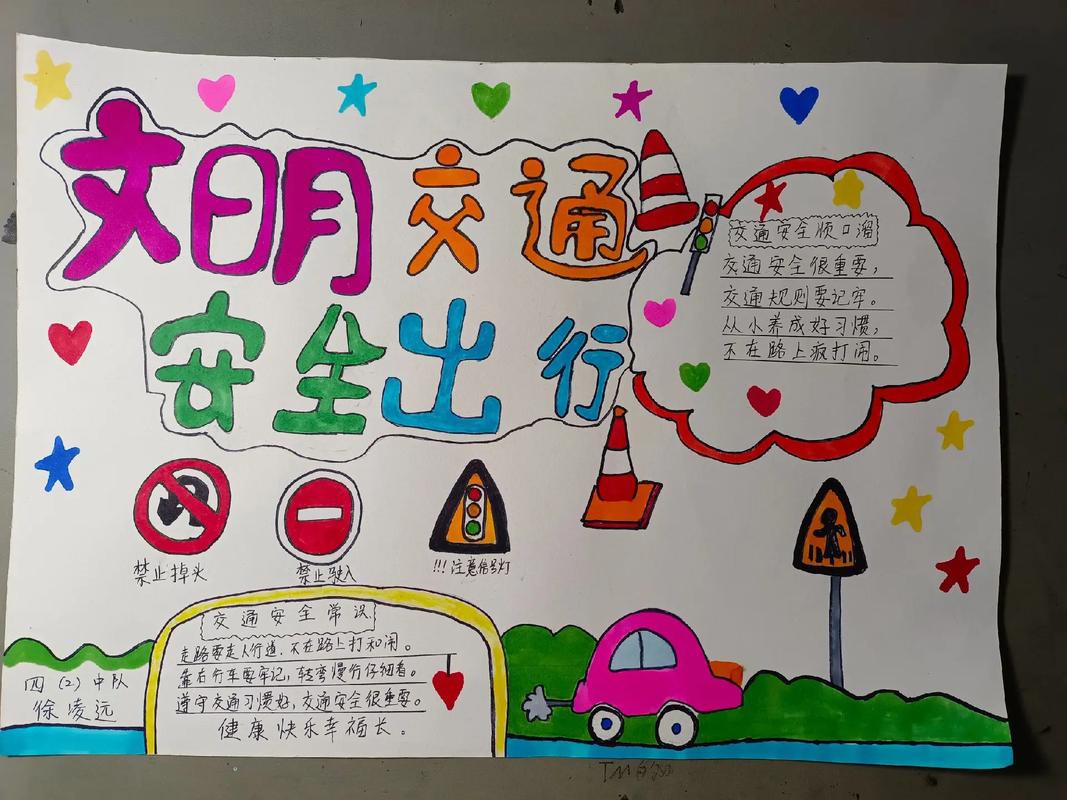 文明交通
安全出行
交通安全顺口溜
交通安全很重要，
交通规则要记牢。
从小养成好习惯，
不在路上疯打闹。
禁止掉头
禁止驶入
!!!注意信号灯
交通安全常识
走路要走人行道，不在路上打和闹。
靠右行车要牢记，转弯慢行仔细看。
遵守交通习惯好，交通安全很重要。
健康快乐幸福长。
四（2）中队
徐凌远